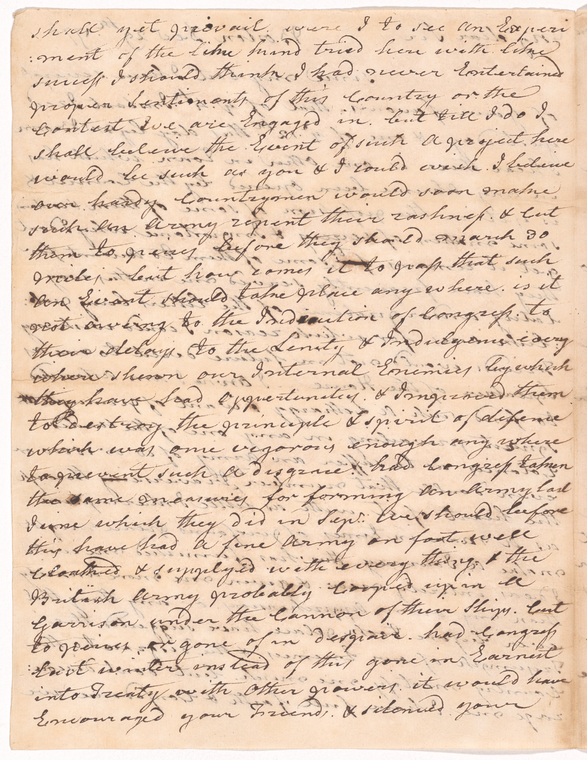 shall yet prevail. were I to see an Experi
:ment of the like kind tried here with like
success I should think I had never Entertained
proper Sentiments of this Country or the
Contest we are Engaged in. but till I do I
shall believe the Event of such a project here
would be such as you & I could wish. I believe
our hardy Countrymen would soon make
such an Army repent their rashness. & cut
them to pieces before they should march 30
miles. but how comes it to pass that such
an Event should take place any where. is it
not owing to the Indecition of Congress, to
their delays, to the Lenity & Indulgence every
where shewn our Internal Enemies. by which
they have had oppertunities & Improved them
to destroy the principle & spirit of defence
which was once vigorous enough any where
to prevent such a disgrace. had Congress taken
the same measures for forming an Army last
June which they did in Sepr. we should before
this have had a fine Army on foot well
Cloathed & supplyed with every thing, & the
British Army probably cooped up in a
Garrison under the Cannon of their Ships. cut
to pieces, or gone of in despair. had Congress
last winter instead of this gone in Earnest
into Treaty with other powers it would have
Encouraged your Friends, & silenced your